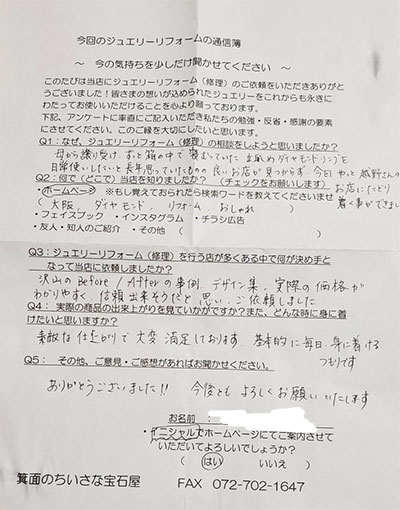 今回のジュエリーリフォームの通信簿
～ 今の気持ちを少しだけ聞かせてください ～
このたびは当店にジュエリーリフォーム（修理）のご依頼をいただきありが
とうございました！皆さまの想いが込められたジュエリーをこれからも永きに
わたってお使いいただけることを心より願っております。
下記、アンケートに率直にご記入いただき私たちの勉強・反省・感謝の要素
にさせてください。このご縁を大切にしたいと思います。
Q1：なぜ、ジュエリーリフォーム（修理）の相談をしようと思いましたか？
母から譲り受け、ずっと箱の中で眠っていた立爪ダイヤモンドリングを
日常使いしたいと長年思っていたものの良いお店が見つからず、今日やっと越野さんの
お店にたどり
着く事ができました
Q2：何で（どこで）当店を知りましたか？ （チェックをお願いします）
・ホームページ ※もし覚えておられたら検索ワードを教えてくださいませ
（ 大阪、ダイヤモンド、リフォーム おしゃれ ）
・フェイスブック ・インスタグラム ・チラシ広告
・友人・知人のご紹介 ・その他（ ）
Q3：ジュエリーリフォーム（修理）を行う店が多くある中で何が決め手と
なって当店に依頼しましたか？
沢山のBefore/Afterの事例、デザイン集、実際の価格が
わかりやすく、信頼出来そうだと思い、ご依頼しました
Q4： 実際の商品の出来上がりを見ていかがですか？また、どんな時に身に着
けたいと思いますか？
素敵な仕上がりで大変満足しております。基本的に毎日、身に着ける
つもりです
Q5： その他、ご意見・ご感想があればお聞かせください。
ありがとうございました!! 今後ともよろしくお願いいたします
お名前：
・イニシャルでホームページにてご案内させて
いただいてよろしいでしょうか？
（ はい いいえ ）
箕面のちいさな宝石屋 FAX 072-702-1647